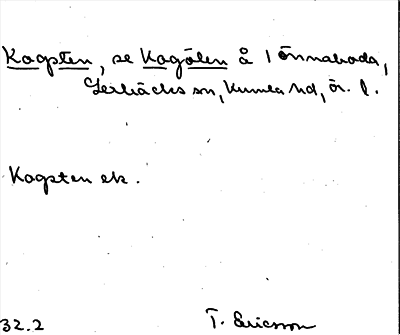 Kagsten, se Kagölen å 1 Önnaboda,
Lerbäcks sn, Kumla hd, ör. l.
Kagsten ek.
32.2 T. Ericsson